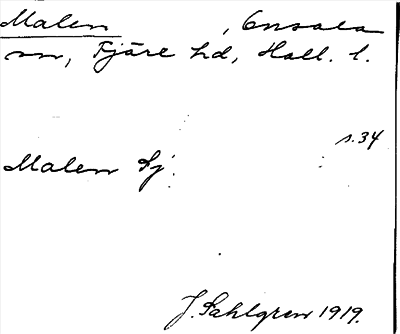 Malen , Onsala
sn, Fjäre hd, Hall. l.
s. 34
Malen Sj.
J. Sahlgren 1919.